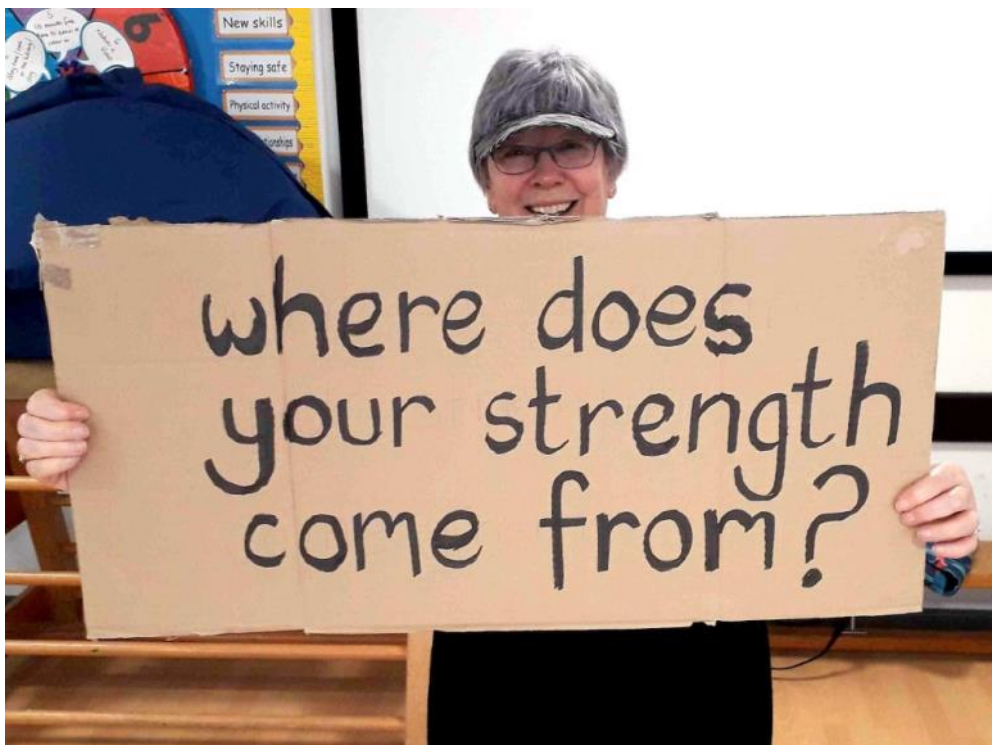 New skills
Staying safe
Physical activity
where does
your strength
come from?